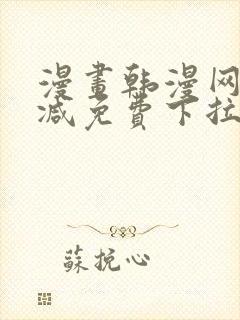 漫畫韩漫网
减免費下拉
蘇挽心